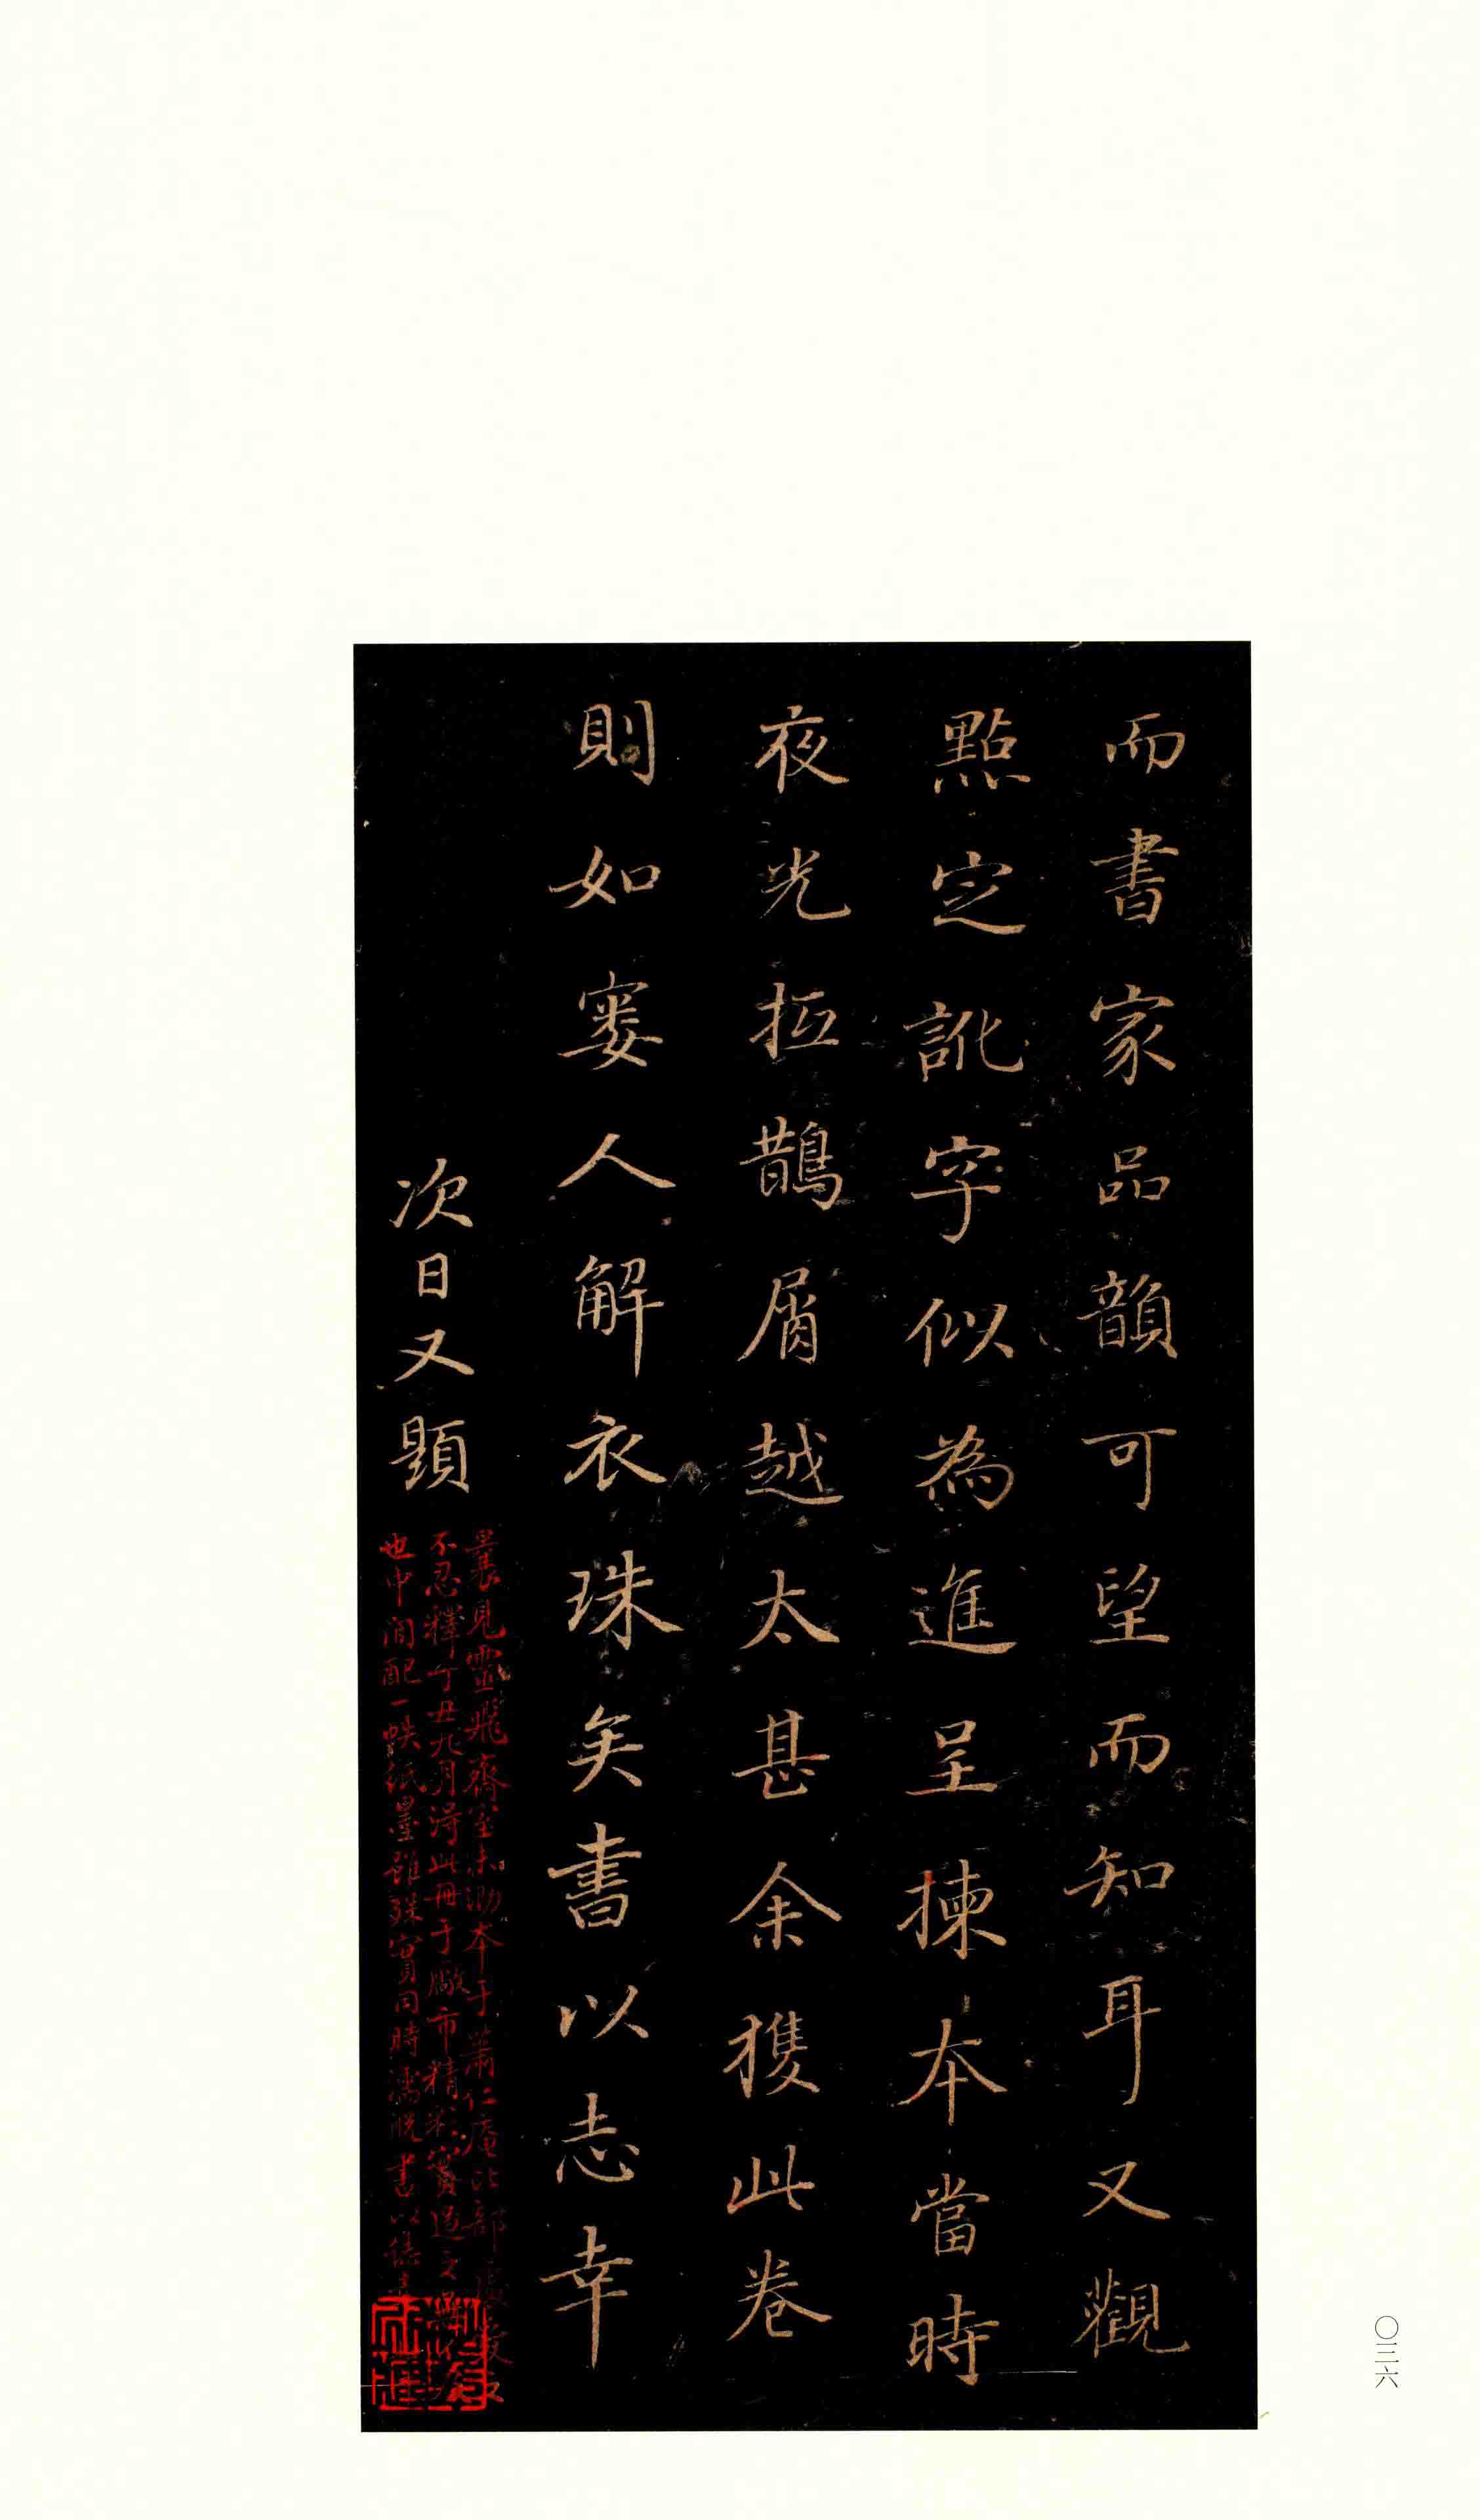 而書家品韻可望而知耳又觀
點定訛字似為進呈揀本當時
夜光抵鵲屑越太甚余獲此卷
則如窶人解衣珠矣書以志幸
次日又題
曩見靈飛齋室未泐本于蕭仁庵比部
不忍釋丁丑九月得此冊于廠市精彩實過之
也中間配一帙紙墨雖殊實同時濡脫書以
〇三六